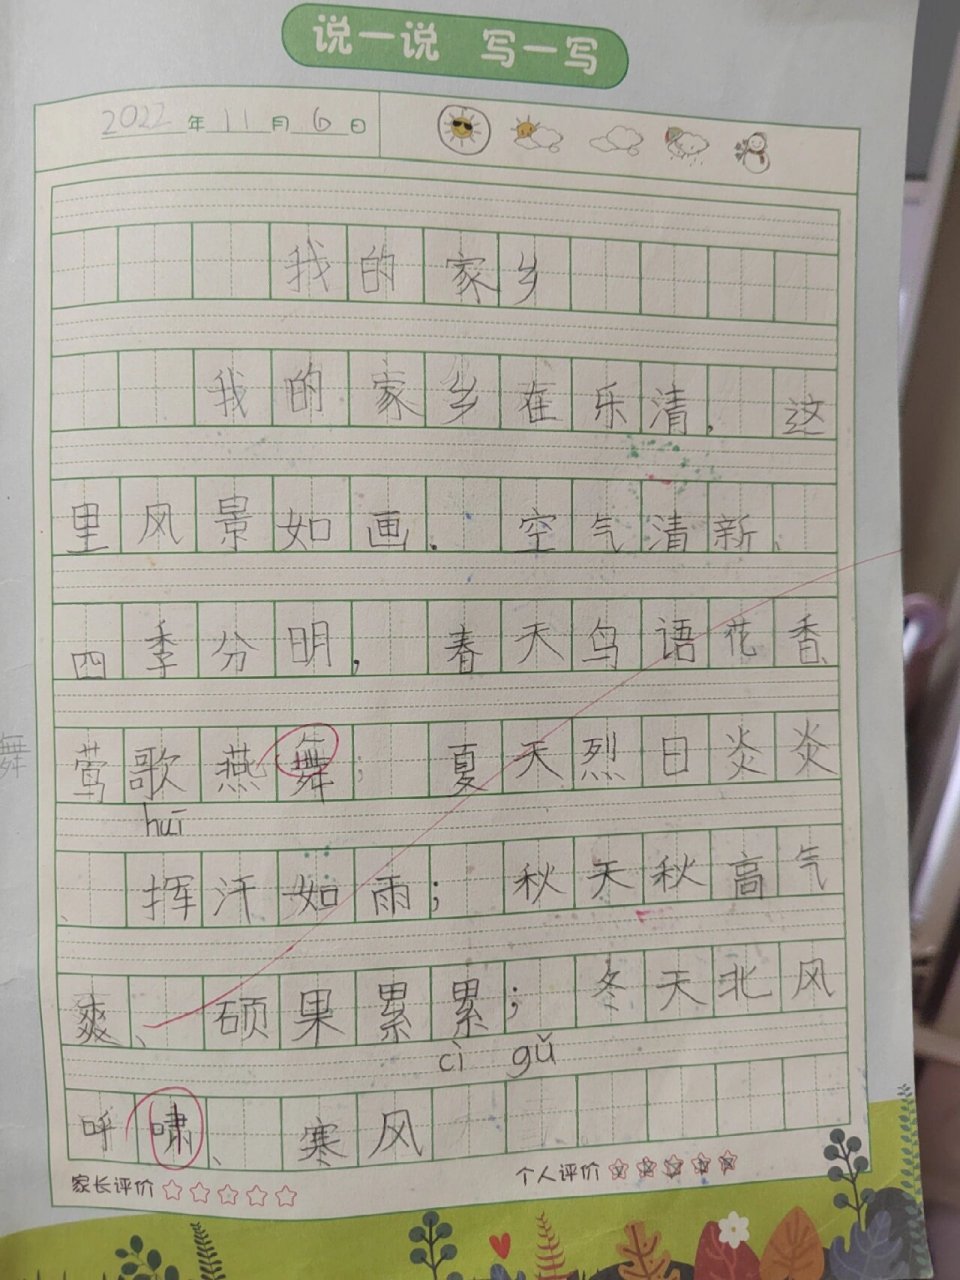 说一说 写一写
2022年11月6日
我的家乡
我的家乡在乐清，这
里风景如画．空气清新、
四季分明，春天鸟语花香、
莺歌燕舞；夏天烈日炎炎
舞
huī
、挥汗如雨；秋天秋高气
爽、硕果累累；冬天北风
cì gǔ
呼啸、寒风
家长评价 个人评价